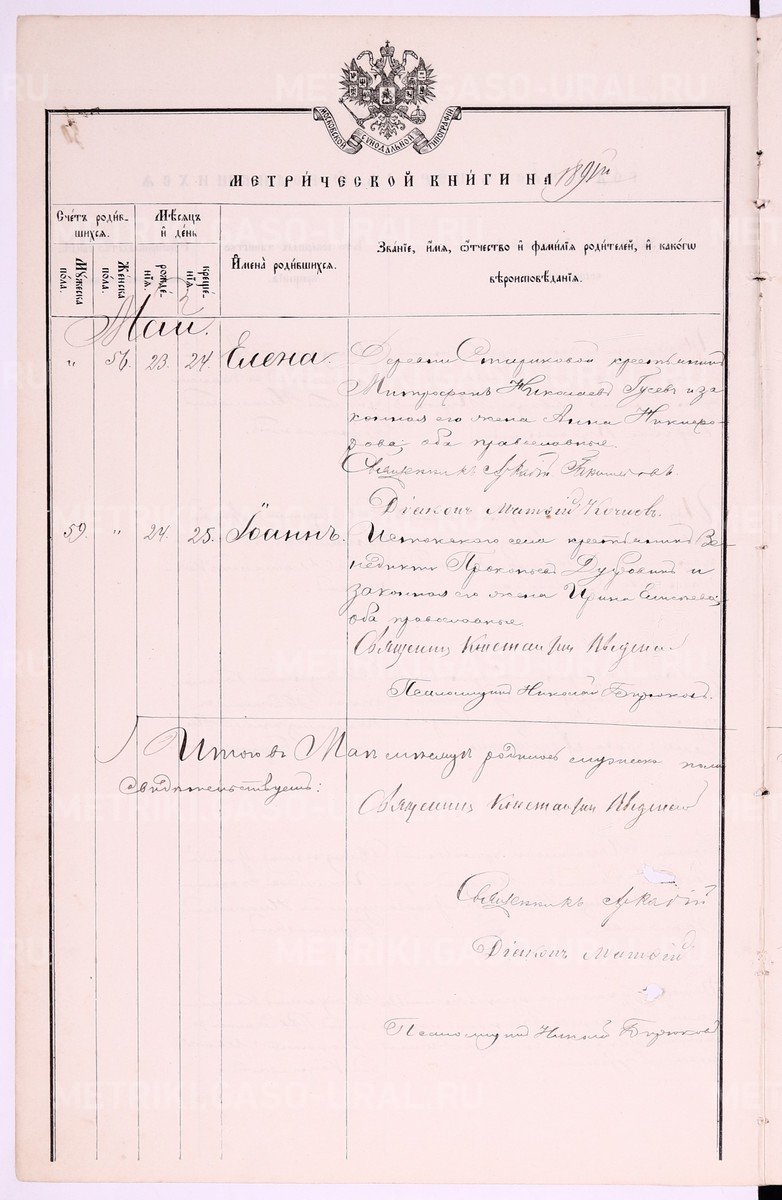 МОСКОВСКОЙ СѴНОДАЛЬНОЙ ТИПОГРАФІИ
МЕТРИ́ЧЕСКОЙ КНИ́ГИ НА 1891й
Сче́тъ роди́вшихся.
Мѣ́сяцъ и҆ де́нь
И҆мена̀ роди́вшихся.
Зва́нїе, и҆́мя, ѻ҆́тчество и҆ фами́лїя роди́телей, и҆ како́гѡ вѣроисповѣ́данїя.
Му́жеска по́ла.
Же́нска по́ла.
рожде́нїя.
креще́нїя.
Май.
" 56. 23. 24. Елена. Деревни Стариковой крестьянинъ
Митрофанъ Николаевъ Гусевъ и за
конная его жена Анна Никифо-
рова; оба православные.
Священникъ Аркадій
Діаконъ Матѳій Кочневъ.
59. " 24. 25. Іоаннъ. Истокскаго села крестьянинъ Ве-
недиктъ Прокопьевъ Дубровинъ и
законная его жена Ирина Елисеева;
оба православные.
Священникъ Константинъ
Псаломщикъ Николай Бирюковъ.
Итого въ Маѣ родилось мужеска пола
свидѣтельствуетъ:
Священникъ Константинъ
Священникъ Аркадій
Діаконъ Матѳій
Псаломщикъ Николай Бирюковъ
METRIKI.GASO-URAL.RU